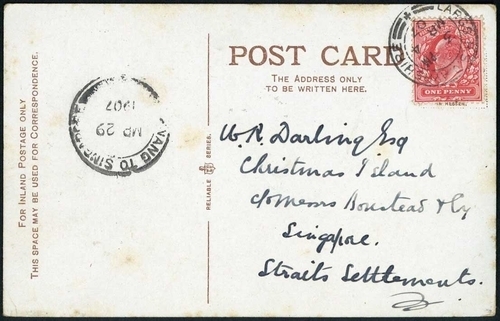 POST CARD
THE ADDRESS ONLY
TO BE WRITTEN HERE.
FOR INLAND POSTAGE ONLY
THIS SPACE MAY BE USED FOR CORRESPONDENCE.
RELIABLE SERIES.
VANG TO SINGAPORE
MR 29
1907
LARG
SHIRE
ONE PENNY
W. R. Darling Esq
Christmas Island
c/o Messrs Boustead & Co
Singapore.
Straits Settlements.